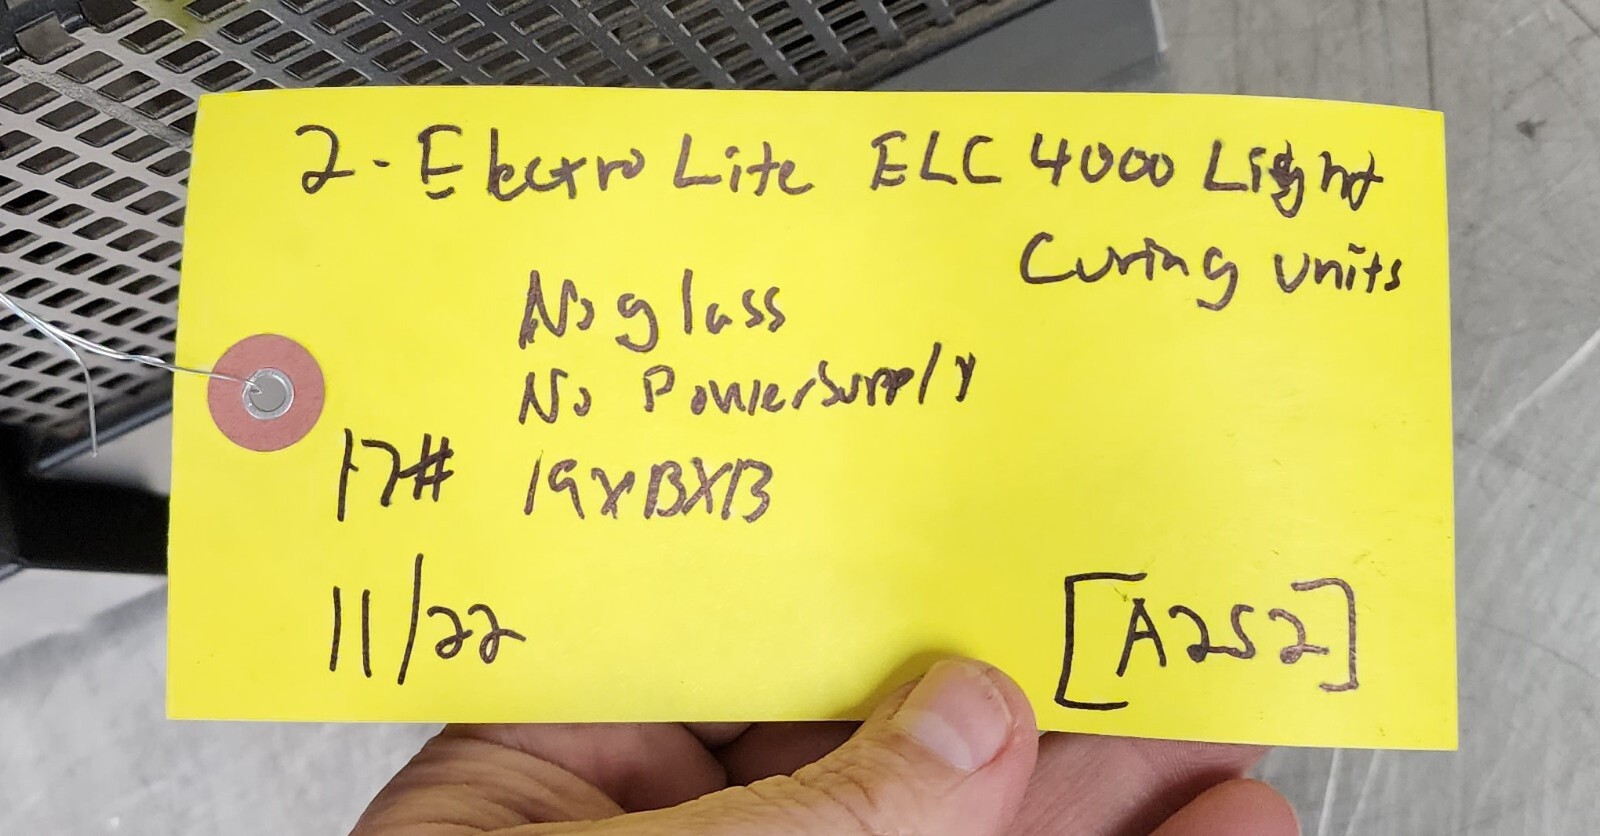 2-Electro Lite ELC 4000 Light
Curing units
No glass
No Powersupply
17# 19x13x13
11/22
[A2S2]